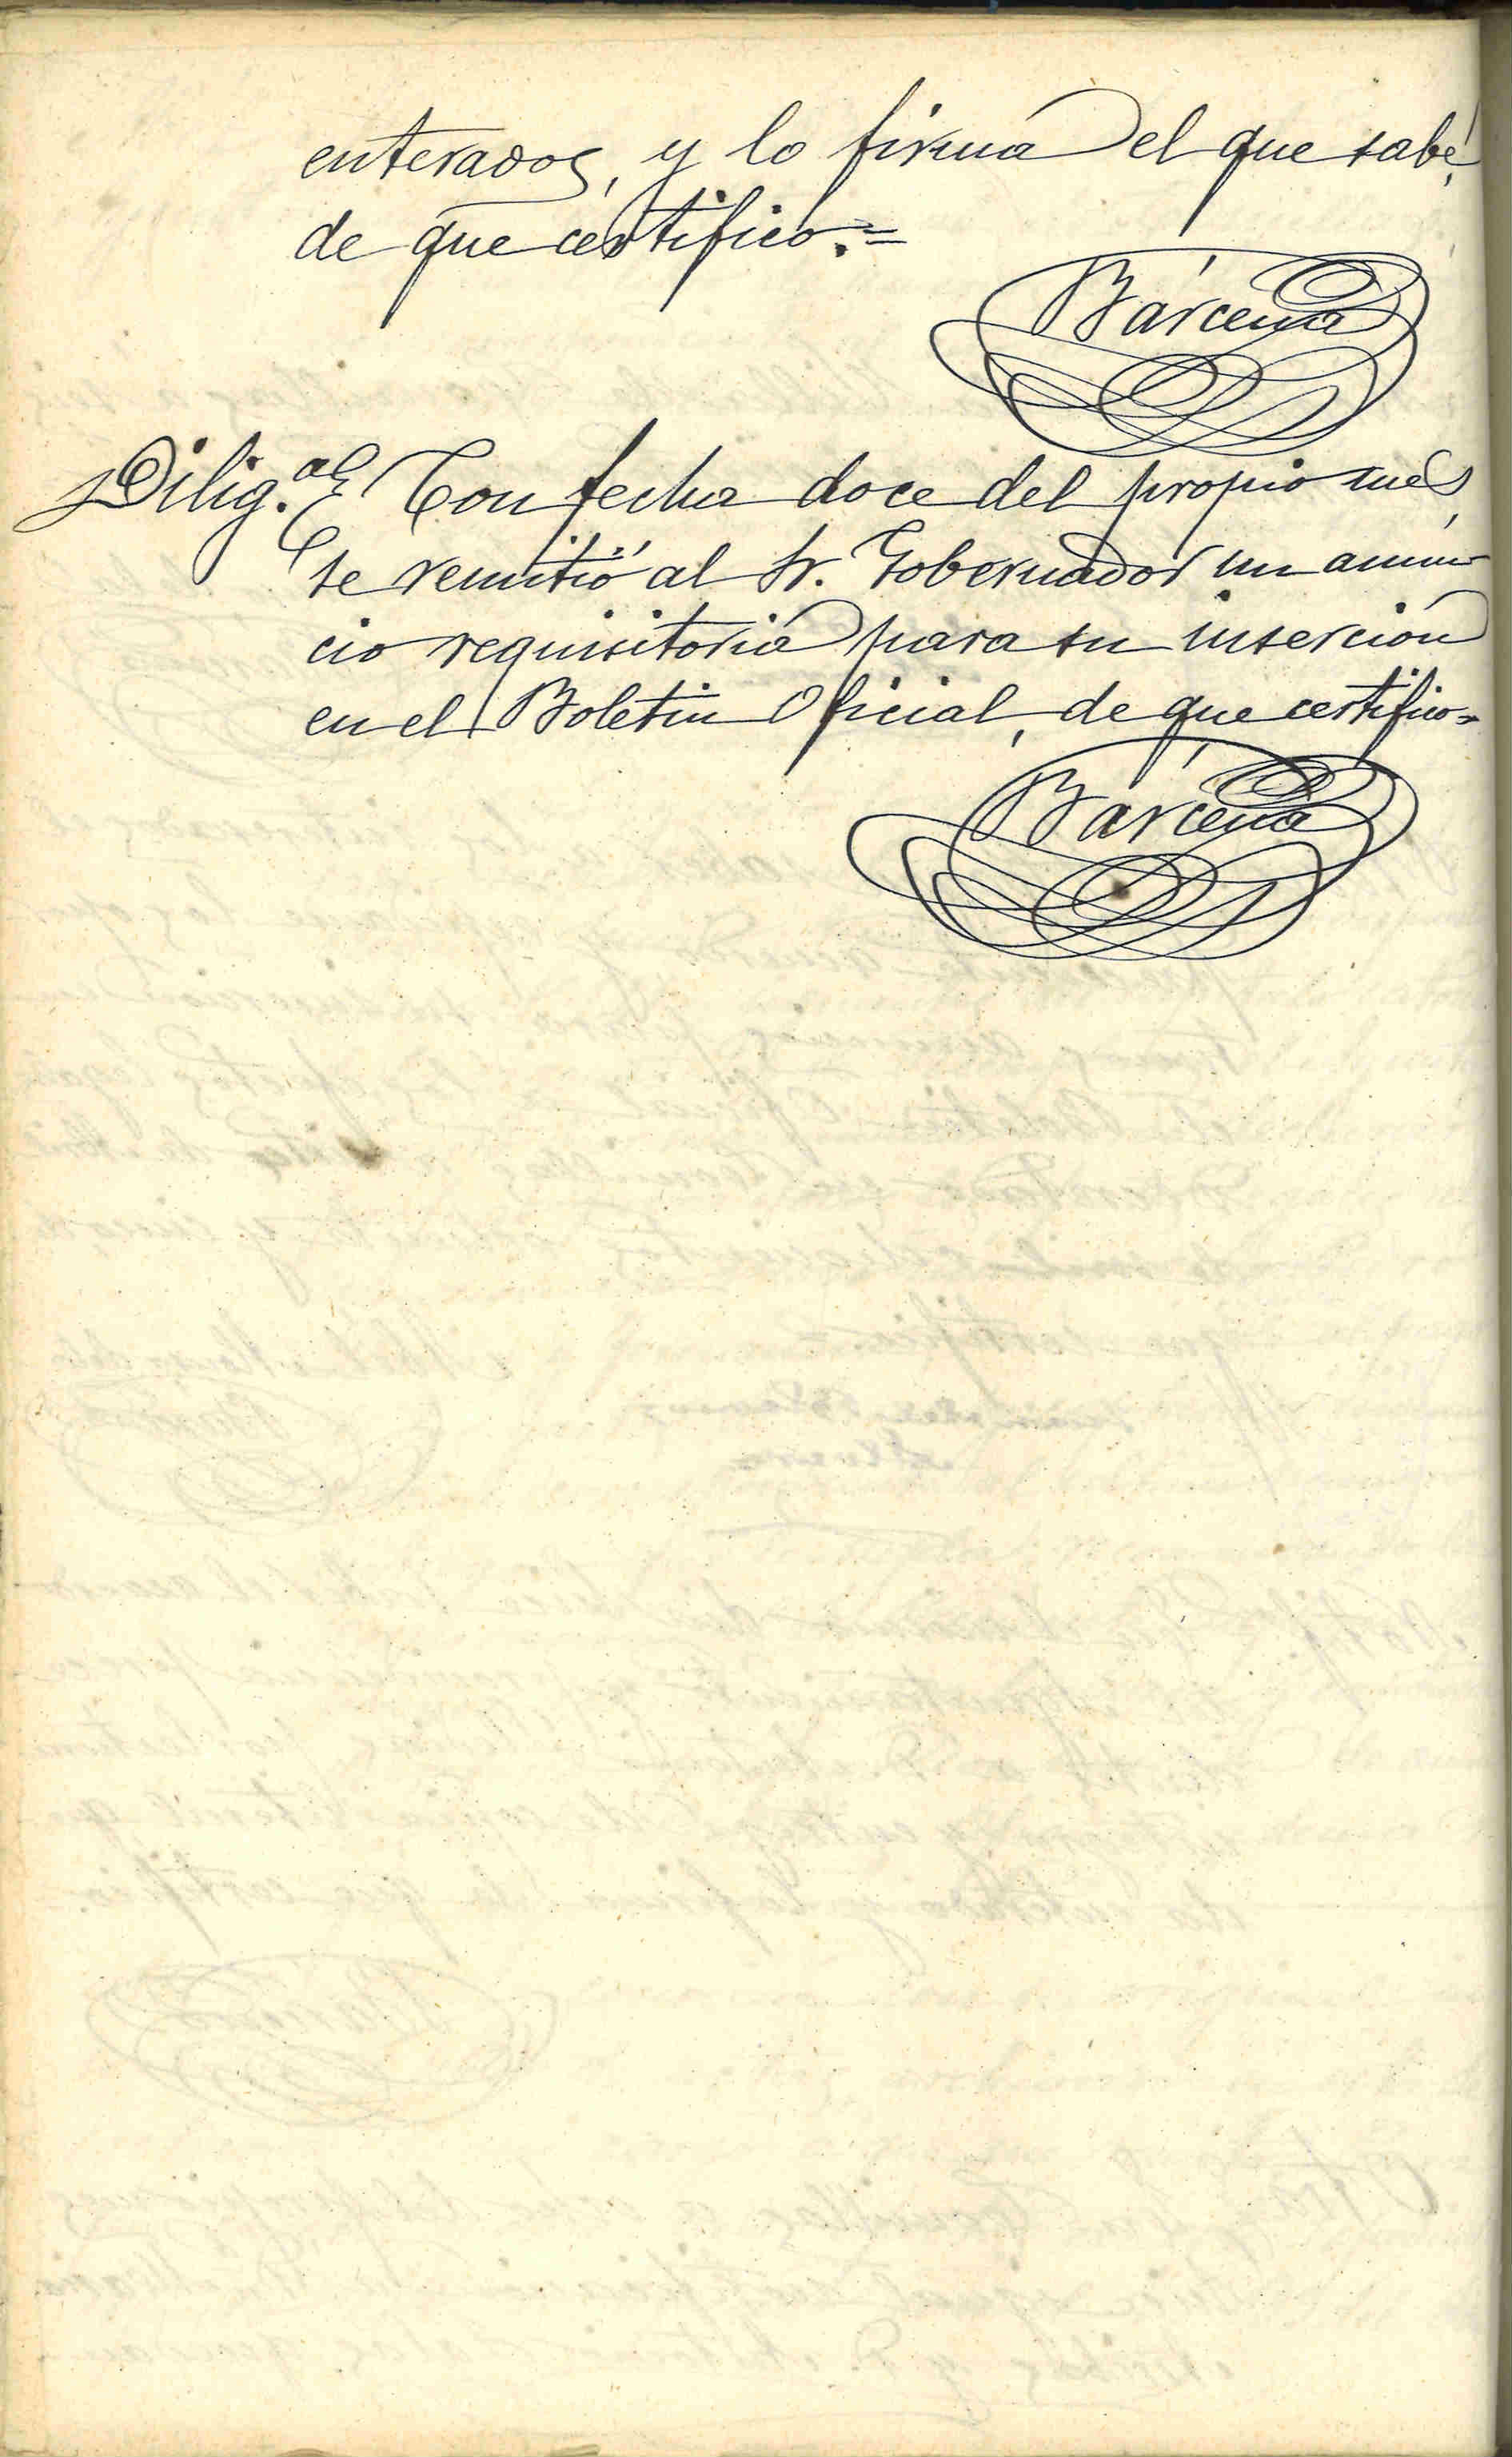 enterados, y lo firma el que sabe,
de que certifico.=
Bárcena
Dilig.ª Con fecha doce del propio mes,
se remitió al Sr. Gobernador un anun-
cio requisitoria para su inserción
en el Boletin Oficial, de que certifico=
Bárcena